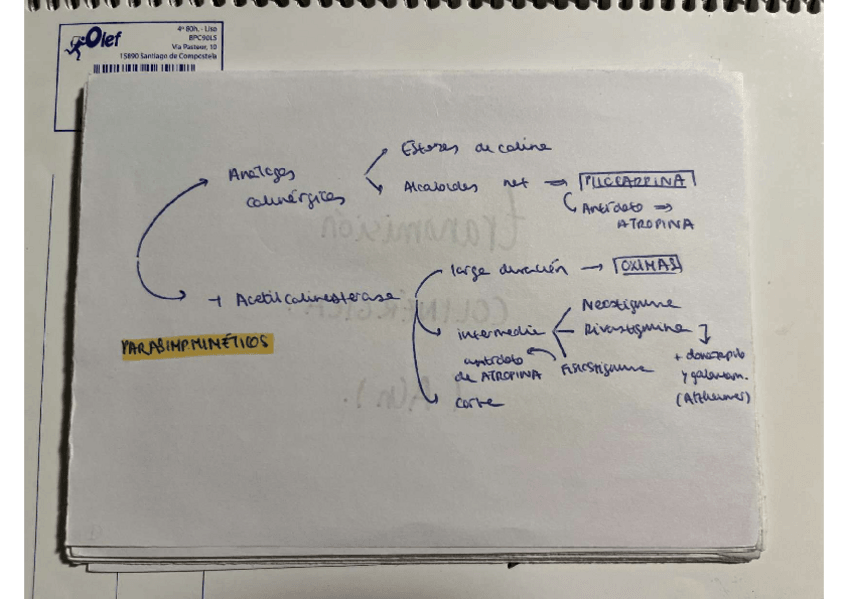 Olef
4º 80h. - Liso
BPC90LS
Vía Pasteur, 10
15890 Santiago de Compostela
Análogos
colinérgicos
Ésteres de colina
Alcaloides nat ⇒ PILOCARPINA
Antídoto ⇒
ATROPINA
⊣ Acetilcolinesterasa
larga duración → OXIMAS
intermedia
Neostigmina
Rivastigmina
+ donezepilo
y galantam.
(Alzheimer)
Fisostigmina
antídoto
de ATROPINA
corta
PARASIMPMIMÉTICOS
transmisión
COLINÉRGICA